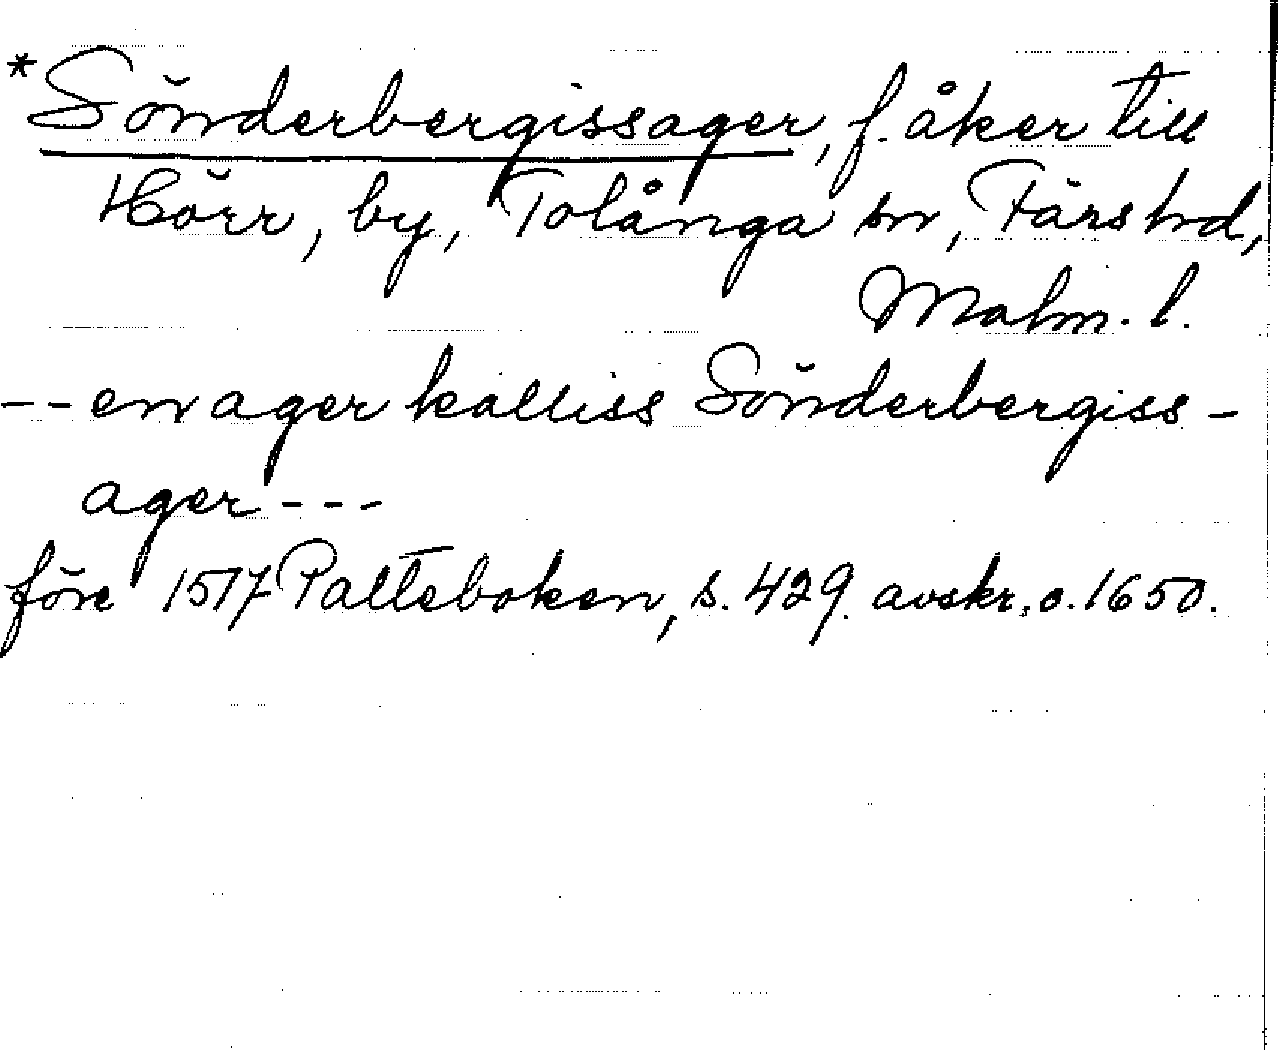 *Sönderbergissager, f. åker till
Hörr, by, Tolånga sn, Färs hd,
Malm. l.
-- en ager kalliss Sönderbergiss-
ager ---
före 1517 Palteboken, s. 429. avskr. o. 1650.